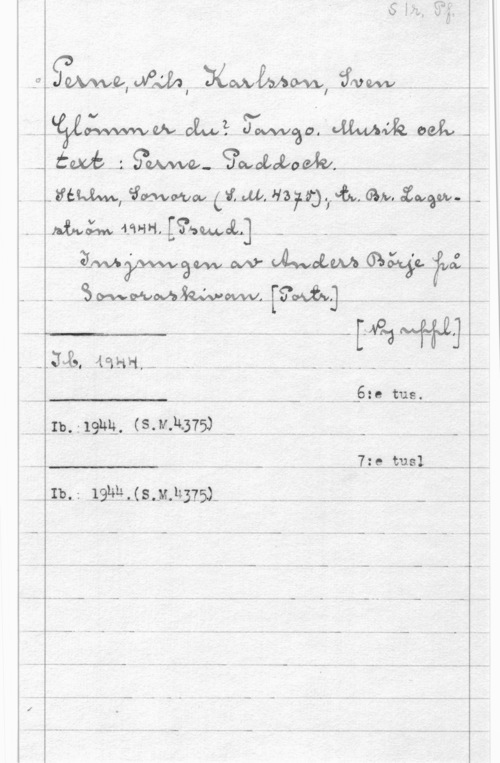 S 1r, Pf.
Perne, Nils, Karlsson, Sven
Glömmer du? Tango. Musik och
text : Perne- Paddock.
Sthlm, Sonora (S.M. 4375); tr. Br. Lager-
ström 1944. [Pseud.]
Insjungen av Anders Börje på
Sonoraskivan. [Portr.]
[Ny uppl.]
Ib. 1944.
6:e tus.
Ib. 1944. (S.M.4375)
7:e tusl
Ib. 1944.(S.M.4375)